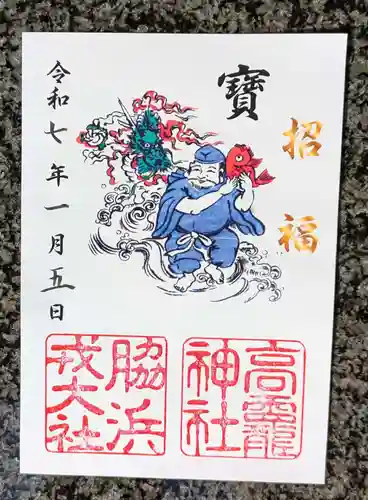 招福
寶
令和七年一月五日
高龗神社
脇浜戎大社